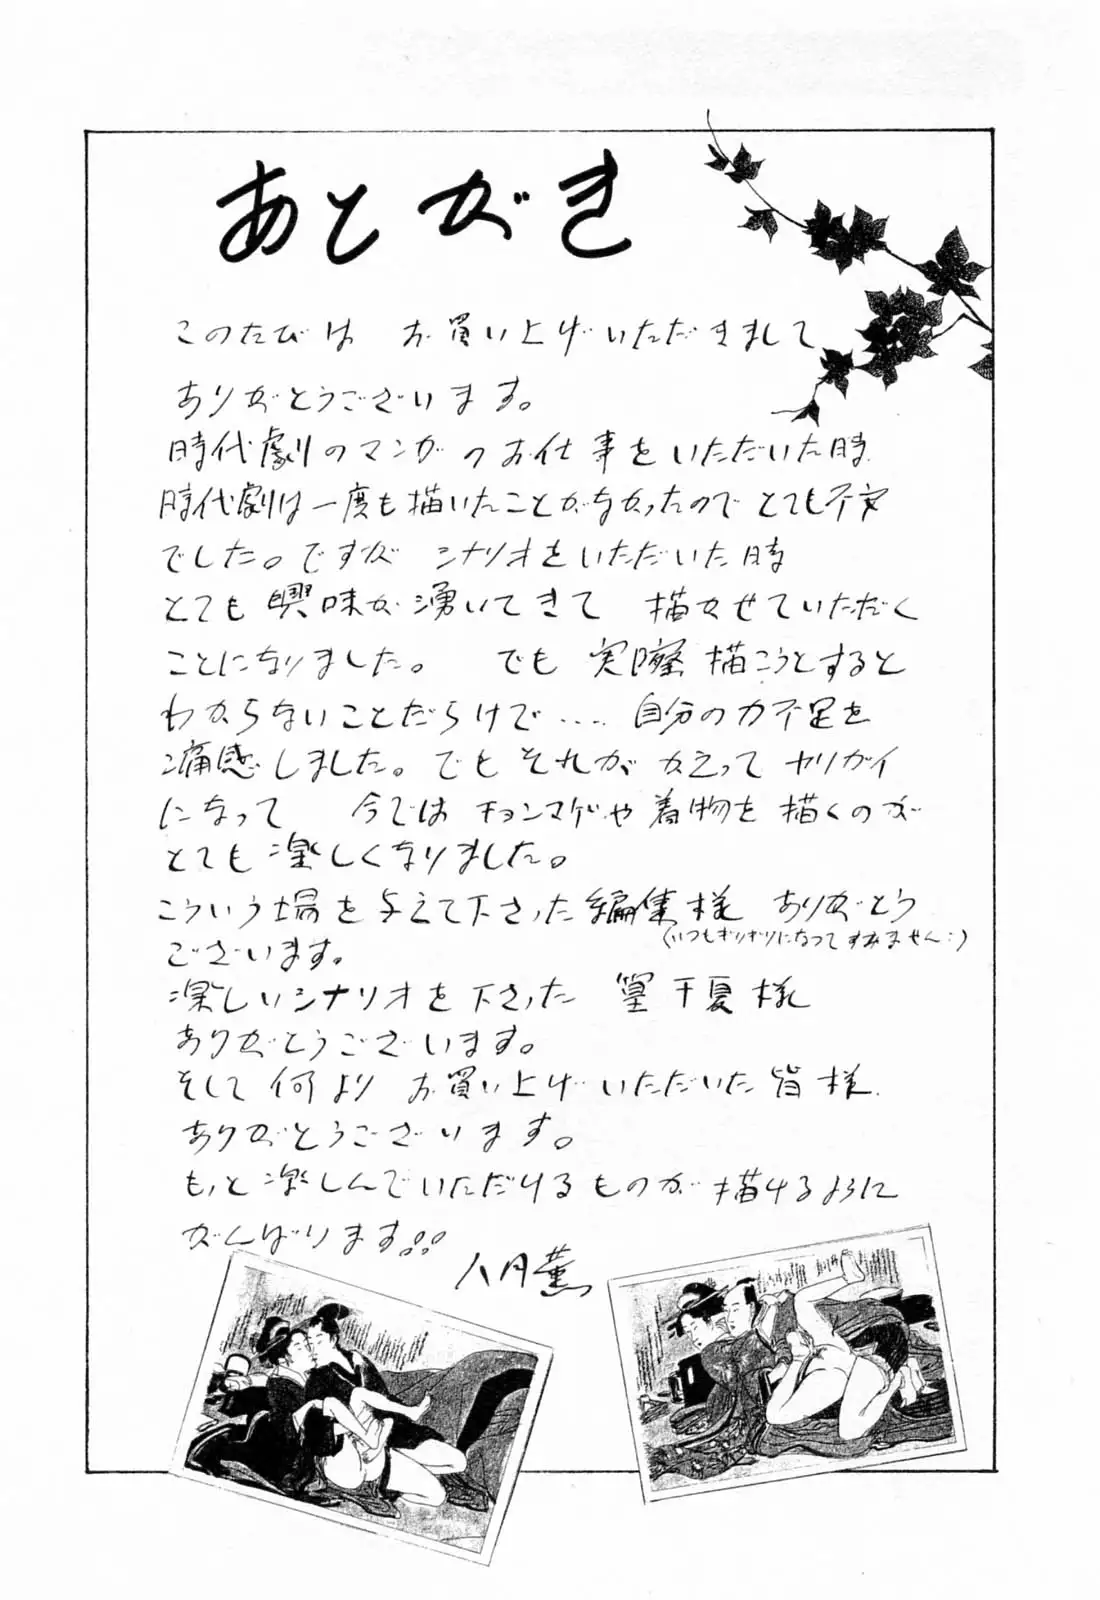 あとがき
このたびは お買い上げいただきまして
ありがとうございます。
時代劇のマンガのお仕事をいただいた時
時代劇は一度も描いたことがなかったので とても不安
でした。ですが シナリオをいただいた時
とても興味が湧いてきて 描かせていただく
ことになりました。 でも 実際描こうとすると
わからないことだらけで‥‥ 自分の力不足を
痛感しました。でもそれが かえって ヤリガイ
になって 今ではチョンマゲや着物を描くのが
とても楽しくなりました。
こういう場を与えて下さった編集様 ありがとう
(いつもギリギリになってすみません:)
ございます。
楽しいシナリオを下さった 篁千夏様
ありがとうございます。
そして何より お買い上げいただいた皆様
ありがとうございます。
もっと楽しんでいただけるものが描けるように
がんばります!!
八月薫